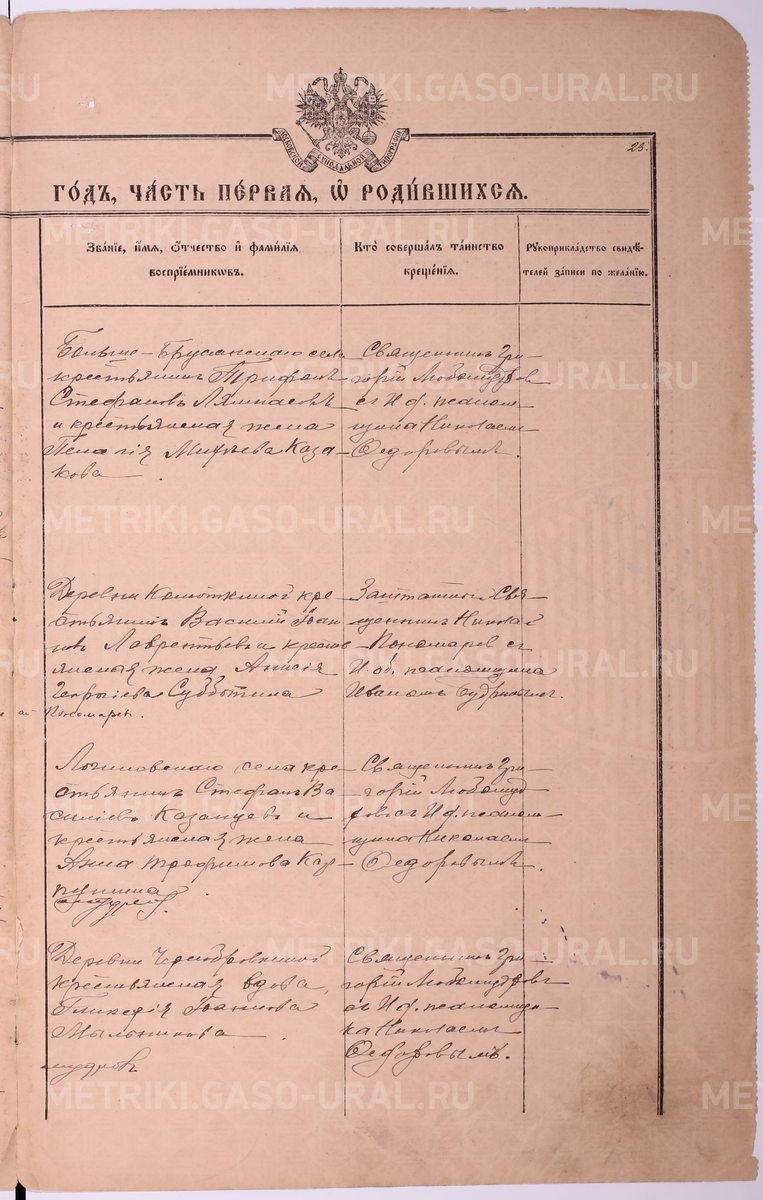 METRIKI.GASO-URAL.RU
МОСКОВСКОЙ СѴНОДАЛЬНОЙ ТИПОГРАФІИ
23.
ГО́ДЪ, ЧА́СТЬ ПЕ́РВАЯ, Ѡ҆ РОДИ́ВШИХСЯ.
Зва́нїе, и҆́мя, ѻ҆́тчество и҆ фами́лїя
воспрїе́мникѡвъ.
Кто̀ соверша́лъ та́инство
креще́нїя.
Рꙋкоприкла́дство свидѣ́-
телей за́писи по жела́нїю.
Больше-Брусянскаго села
крестьянинъ Трифонъ
Стефановъ
и крестьянская жена
Пелагія Михѣева Каза-
кова
Священникъ Гри-
горій Любомудров
съ И. д. псалом-
щика Николаемъ
Ѳедоровымъ.
Деревни крес-
тьянинъ Василій Іоан-
новъ Лаврентьевъ и кресть-
янская жена Анисія
Георгіева Субботина
Пономарев.
Заштатный Свя-
щенникъ Николай
Пономарев съ
И. об. псаломщика
Иваномъ Кудриным.
Логиновскаго села кре-
стьянинъ Стефанъ Ва-
сильевъ Казанцевъ и
крестьянская жена
Анна Трофимова Кар-
пушина
Священникъ Гри-
горій Любомуд-
ровъ съ И. д. псалом-
щика Николаемъ
Ѳедоровымъ.
Деревни Чернобровкиной
крестьянская вдова
Гликерія Іоаннова
Мыльникова
мудровъ
Священникъ Гри-
горій Любомудровъ
съ И. д. псаломщи-
ка Николаемъ
Ѳедоровымъ.